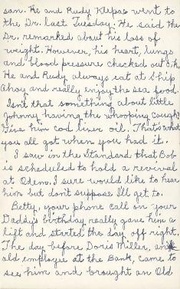 son. He and Rudy Klepac went to
the Dr. last Tuesday. He said the
Dr. remarked about his loss of
weight. However, his heart, lungs
and blood pressure checked out O.K.
He and Rudy always eat at Ship
Ahoy and really enjoy the sea food.
Isn't that something about little
Johnny having the whooping cough?
Give him cod liver oil. That's what
you all got when you had it.
I saw in the Standard that Bob
is scheduled to hold a revival
at Odem. I sure would like to hear
him but don't suppose I'll get to.
Betty, your phone call on your
Daddy's birthday really gave him a
lift and started the day off right.
The day before Doris Miller, an
old employee at the Bank, came to
see him and brought an Old